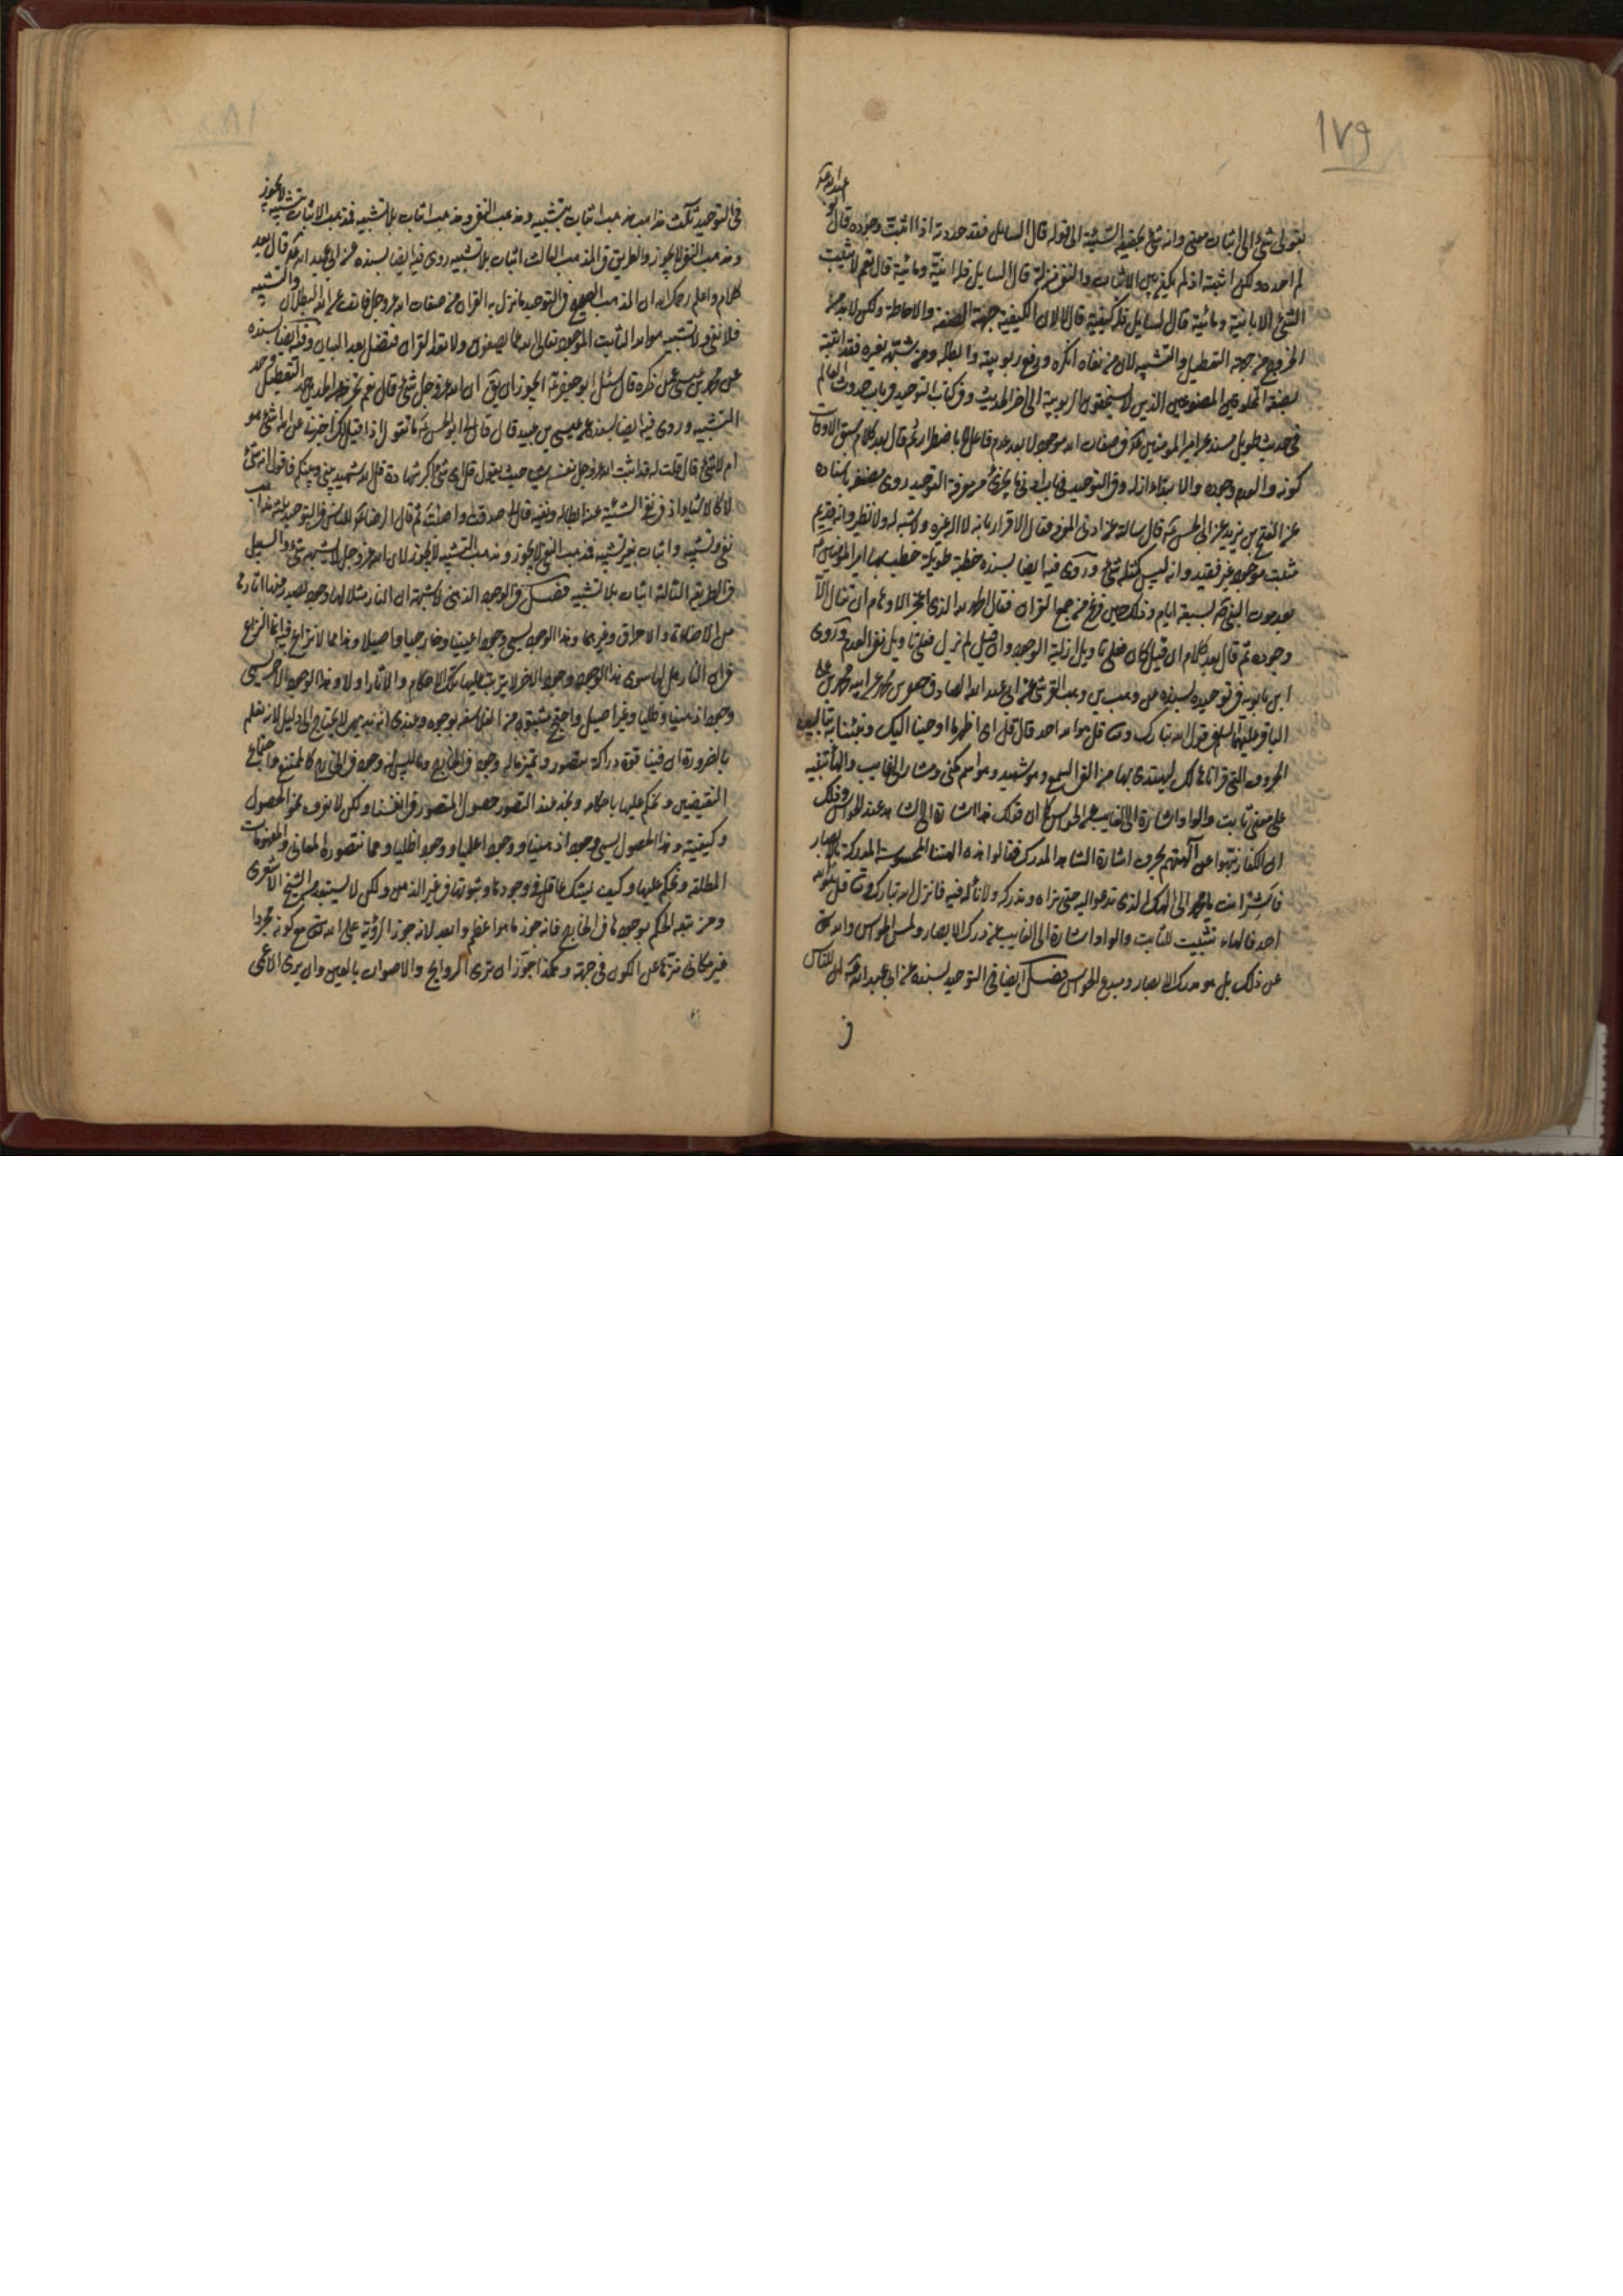 ١٧٩
بقولى شئ الى اثبات معنى وانه شئ بحقيقة الشيئية الى قوله قال السايل فقد حددته اذا اثبت وجوده قال ابو عبد الله عم
لم احده ولكن اثبته اذ لم يكن بين الاثبات والنفى منزلة قال السايل فله انية ومائية قال نعم لا يثبت
الشئ الا بانية ومائية قال السايل فله كيفية قال لا لان الكيفية جهة الصفة والاحاطة ولكن لا بد من
الخروج من جهة التعطيل والتشبيه لان من نفاه انكره ورفع ربوبيته وابطله ومن شبهه بغيره فقد اثبته
بصفة المخلوقين المصنوعين الذين لا يستحقون الربوبية الى اخر الحديث وفى كتاب التوحيد فى باب حدوث العالم
فى حديث طويل مسند عن امير المومنين فى صفات الله موجود لا بعد عدم فاعل لا باضطرار ثم قال بعد كلام سبق الاوقات
كونه والعدم وجوده والابتداء ازله وفى التوحيد فى باب ادنى ما يجزى من معرفة التوحيد روى باسناده
عن الفتح بن يزيد عن ابى الحسن قال سالته عن ادنى المعرفة فقال الاقرار بانه لا اله غيره ولا شبه له ولا نظير وانه قديم
مثبت موجود غير فقيد وانه ليس كمثله شئ وروى فيه ايضا بسنده خطبة طويلة خطب بها امير المومنين
بعد موت النبى بسبعة ايام وذلك حين فرغ من جمع القران فقال الحمد لله الذى اعجز الاوهام ان تنال الا
وجوده ثم قال بعد كلام ان قيل كان فعلى تاويل ازلية الوجود وان قيل لم يزل فعلى تاويل نفى العدم وروى
ابن بابويه فى توحيده بسنده عن وهب بن وهب القرشى عن ابى عبد الله الصادق جعفر بن محمد عن ابيه محمد بن على
الباقر عليهما السلم فى قول الله تبارك وتعالى قل هو الله احد قال قل اى اظهر ما اوحينا اليك ونبئناك به بتاليف
الحروف التى قراناها لك ليهتدى بها من القى السمع وهو شهيد وهو اسم مكنى ومشار الى الغايب والهاء تنبيه
على معنى ثابت والواو اشارة الى الغايب عن الحواس كما ان قولك هذا اشارة الى الشاهد عند الحواس وذلك
ان الكفار نبهوا عن آلهتهم بحرف اشارة الشاهد المدرك فقالوا هذه الهتنا المحسوسة المدركة بالابصار
فاشر انت يا محمد الى الهك الذى تدعو اليه حتى نراه وندركه ولا ناله فيه فانزل الله تبارك وتعالى قل هو الله
احد فالهاء تثبيت للثابت والواو اشارة الى الغايب عن درك الابصار ولمس الحواس والله تعالى
عن ذلك بل هو مدرك الابصار ومبدع الحواس فصل ايضا فى التوحيد بسنده عن ابى عبد الله للناس
فى
فى التوحيد ثلث مذاهب مذهب اثبات بتشبيه ومذهب النفى ومذهب اثبات بلا تشبيه فمذهب الاثبات بتشبيه لا يجوز
ومذهب النفى لا يجوز والطريق فى المذهب الثالث اثبات بلا تشبيه روى فيه ايضا بسنده عن ابى عبد الله قال بعد
كلام واعلم رحمك الله ان المذهب الصحيح فى التوحيد ما نزل به القران من صفات الله عز وجل فانف عن الله البطلان والتشبيه
فلا نفى ولا تشبيه هو الله الثابت الموجود تعالى الله عما يصفون ولا تعد القران فتضل بعد البيان وفيه ايضا بسنده
عن محمد بن عيسى عمن ذكره قال سئل ابو جعفر ايجوز ان يق ان الله عز وجل شئ قال نعم تخرجه عن الحدين حد التعطيل وحد
التشبيه وروى فيه ايضا بسنده عن محمد بن عيسى بن عبيد قال قال لى ابو الحسن ما تقول اذا قيل لك اخبرنى عن الله شئ هو
ام لا شئ قال قلت له قد اثبت الله عز وجل نفسه شيئا حيث يقول قل اى شئ اكبر شهادة قل الله شهيد بينى وبينكم فاقول انه شئ
لا كالاشياء اذ فى نفى الشيئية عنه ابطاله ونفيه قال لى صدقت واصبت ثم قال الرضا للناس فى التوحيد ثلثة مذاهب
نفى وتشبيه واثبات بغير تشبيه فمذهب النفى لا يجوز ومذهب التشبيه لا يجوز لان الله عز وجل لا يشبهه شئ والسبيل
فى الطريقة الثالثة اثبات بلا تشبيه فصل فى الوجود الذهنى لا شبهة ان النار مثلا لها وجود يصدر عنها اثارها
من الاضاءة والاحراق وغيرهما وهذا الوجود يسمى وجودا عينيا وخارجيا واصيلا وهذا مما لا نزاع فيه انما النزاع
فى ان النار هل لها سوى هذا الوجود وجود اخر لا يترتب عليها تلك الاحكام والاثار اولا وهذا الوجود الاخر يسمى
وجودا ذهنيا وظليا وغير اصيل واحتج مثبتوه من الفلاسفه بوجوه وعندى انه بديهى لا يحتاج الى دليل لانه نعلم
بالضرورة ان فينا قوة دراكة نتصور وتميز ماله وجود فى الخارج وما ليس له وجود فى الخارج كالممتنع واجتماع
النقيضين ونحكم عليها باحكام ونجد عند التصور حصول المتصور فى انفسنا ولكن لا نعرف نحو الحصول
وكيفيته وهذا الحصول يسمى وجودا ذهنيا ووجودا علميا ووجودا ظليا ومما نتصوره المعانى والمفهومات
المطلقة ونحكم عليها وكيف يشك عاقل فى وجودها وثبوتها فى غير الذهن ولكن لا يستبعد من الشيخ الاشعرى
ومن تبعه الحكم بوجودها فى الخارج فانه جوز ما هو اعظم وابعد لانه جوز الرؤية على الله تعالى مع كونه مجردا
غير مكانى منزها عن الكون فى جهة وهكذا جوز ان ترى الروايح والاصوات بالعين وان يرى الاعمى